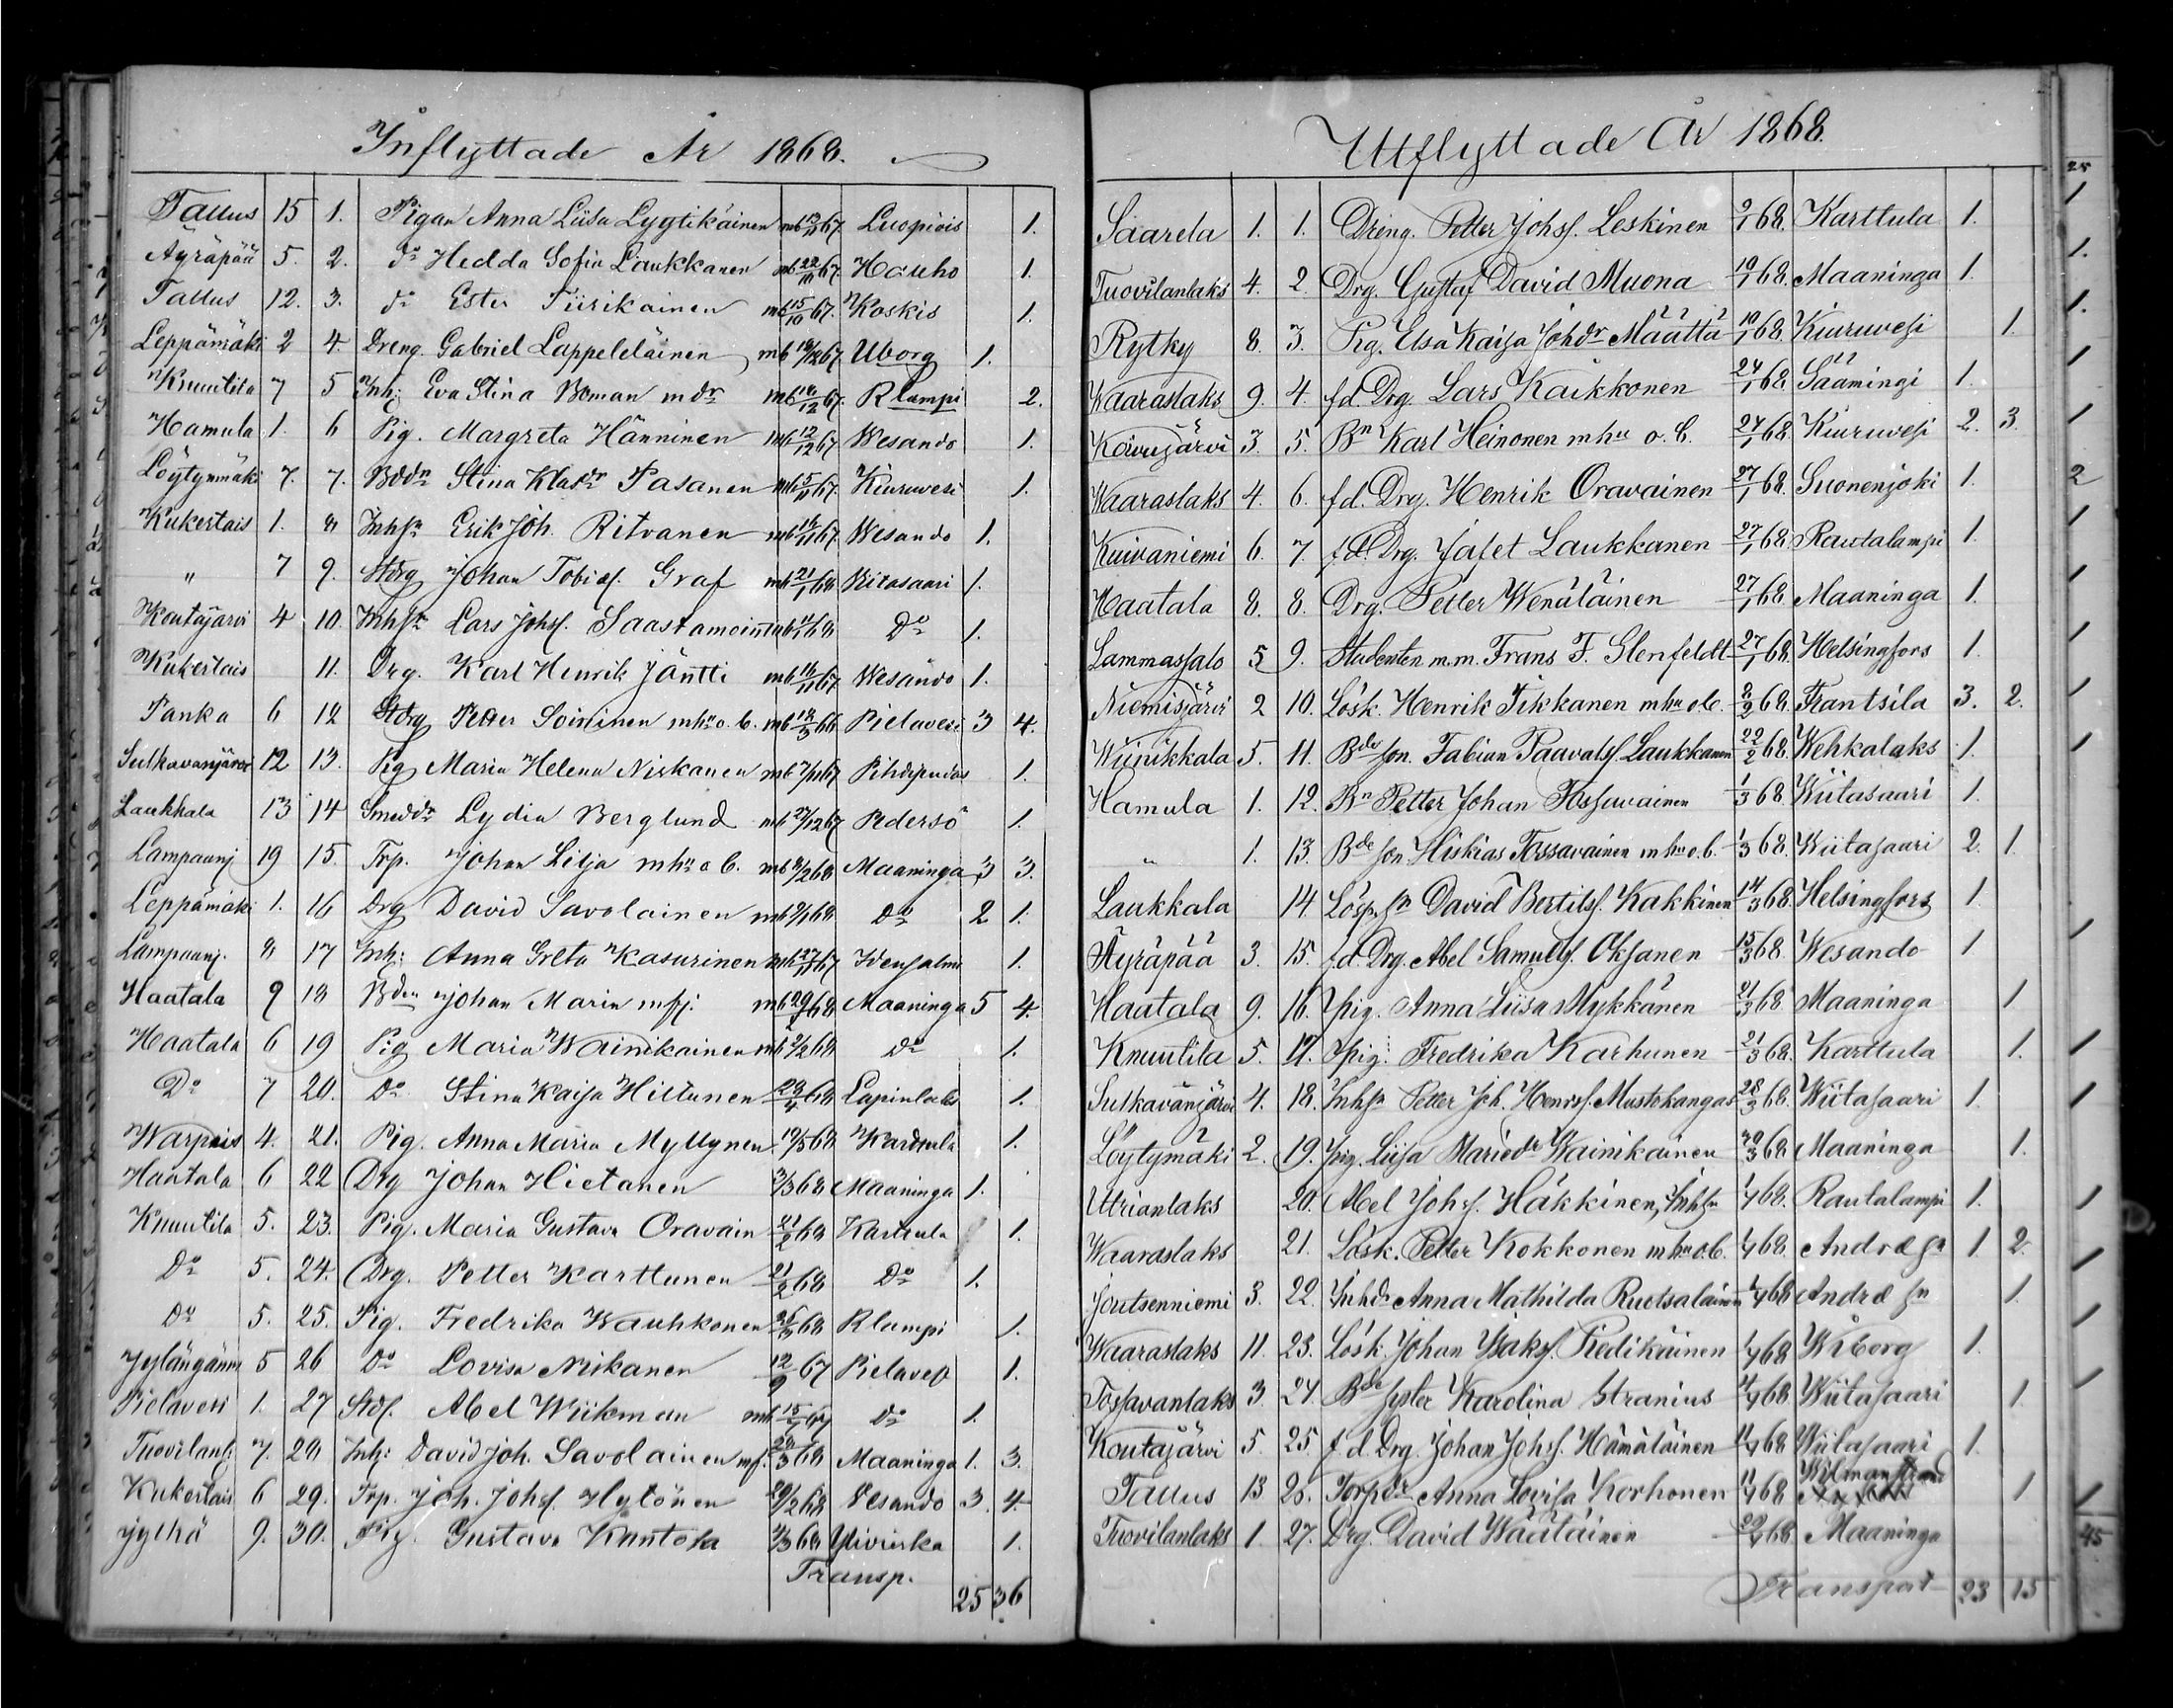 Inflyttade År 1868.
Tallus 15 1. Pigan Anna Liisa Lyytikäinen mb 13/11 67. Luopiois 1.
Äyräpää 5. 2. do Hedda Sofia Laukkanen mb 22/10 67. Hauho 1.
Tallus 12. 3. do Ester Tiirikainen mb 15/10 67. Koskis 1.
Leppämäki 2 4. Dreng. Gabriel Lappeteläinen mb 19/12 67 Uborg 1.
Knuutila 7 5 Inh: Eva Stina Boman m dr mb 18/12 67. Rlampi 2.
Hamula 1. 6 Pig. Margreta Hänninen mb 12/12 67 Wesando 1.
Löytynmäki 7. 7. Bddr Stina Klasdr Pasanen mb 5/11 67. Kiuruwesi 1.
Kukertais 1. 8 Inhsn Erik Joh. Ritvanen mb 16/11 67. Wesando 1.
" 7 9. Stdrg Johan Tobiaf. Graf mb 21/1 68 Witasaari 1.
Koutajärvi 4 10. Inhsn Lars Johsf. Saastamoinen mb 11/1 68 Do 1.
Kukertais 11. Drg. Karl Henrik Jäntti mb 16/11 67 Wesando 1.
Panka 6 12 Stdrg Petter Soininen mhu o. b. mb 18/3 66 Pielavesi 3 4.
Sulkavanjärvi 12 13. Pig Maria Helena Niskanen mb 7/11 67 Pihdipudas 1.
Laukkala 13 14 Smeddr Lydia Berglund mb 27/12 67 Pedersö 1.
Lampaanj 19 15. Trp. Johan Lilja mhu o b. mb 8/2 68 Maaninga 3 3.
Leppämäki 1. 16 Drg David Savolainen mb 9/1 68. do 2 1.
Lampaanj. 8 17 Inh: Anna Greta Kasurinen mb 27/11 67 Idensalmi 1.
Haatala 9 18 Bden Johan Marin mfj: mb 29/2 68 Maaninga 5 4.
Haatala 6 19 Pig Maria Wainikainen mb 2/2 68 do 1.
Do 7 20. Do Stina Kaisa Hiltunen 29/4 68 Lapinlaks 1.
Warpais 4. 21. Pig. Anna Maria Myllynen 19/5 68 Karttula 1.
Haatala 6 22 Drg Johan Hietanen 3/3 68 Maaninga 1.
Knuutila 5. 23. Pig. Maria Gustava Oravain 21/2 68 Karttula 1.
Do 5. 24. Drg. Petter Karttunen 21/2 68 Do 1.
Do 5. 25. Pig. Fredrika Wauhkonen 25/3 68 Rlampi 1.
Jylängänm 5 26 Do Lovisa Niskanen 12/9 67 Pielaves 1.
Pielavesi 1. 27 Stdf. Abel Wiikman mb 15/7 67 do 1.
Tuovilanl. 7. 28 Inh: David Joh. Savolainen mf. 28/3 68 Maaninga 1. 3.
Kukertais 6 29. Trp. Joh. Johsf. Hytönen 29/2 68 Vesando 3 4
Jylhä 9. 30. Pig. Gustava Kantola 3/3 68 Ylivieska 1.
Transp. 25 36
Utflyttade År 1868.
Saarela 1. 1. Dreng. Petter Johsf. Leskinen 9/1 68. Karttula 1.
Tuovilanlaks 4. 2. Drg. Gustaf David Muona 19/1 68. Maaninga 1.
Rytky 8. 3. Pig. Elsa Kaisa Johdr Määttä 19/1 68. Kiuruvesi 1.
Waaraslaks 9. 4. f.d. Drg. Lars Kaikkonen 24/1 68. Säämingi 1.
Koivujärvi 3. 5. Bn Karl Heinonen mhu o. b. 27/1 68. Kiuruvesi 2. 3.
Waaraslaks 4. 6. f.d. Drg. Henrik Oravainen 27/1 68. Suonenjoki 1.
Kuivaniemi 6. 7. f.d. Drg. Jafet Laukkanen 27/1 68. Rautalampi 1.
Haatala 8. 8. Drg. Petter Wenäläinen 27/1 68. Maaninga 1.
Lammassalo 5 9. Studenten m.m. Frans F. Stenfeldt 27/1 68. Helsingfors 1.
Niemisjärvi 2 10. Lösk. Henrik Tikkanen mhu ob. 2/2 68. Frantsila 3. 2.
Wiinikkala 5. 11. Bde son. Fabian Paavalsf. Laukkanen 22/2 68. Wehkalaks 1.
Hamula 1. 12. Bn Petter Johan Tossavainen 1/3 68 Wiitasaari 1.
" 1. 13. Bde son Hiskias Tossavainen mhu o.b. 1/3 68. Wiitasaari 2. 1.
Laukkala 14. Lösp. sn David Bertilsf. Kakkinen 14/3 68. Helsingfors 1.
Äyräpää 3. 15. f.d. Drg. Abel Samuelsf. Oksanen 15/3 68. Wesando 1
Haatala 9. 16. Pig. Anna Liisa Mykkänen 21/3 68 Maaninga 1
Knuutila 5. 17. Pig. Fredrika Karhunen 21/3 68. Karttula 1.
Sulkavanjärvi 4. 18. Inhsn Petter Joh. Henrsf. Mustokangas 28/3 68. Wiitasaari 1.
Löytymäki 2. 19. Pig. Liisa Mariedr Wainikainen 30/3 68. Maaninga 1.
Utrianlaks 20. Abel Johsf. Häkkinen, Inhsn 1/4 68. Rautalampi 1.
Waaraslaks 21. Lösk. Petter Kokkonen mhu o.b. 1/4 68. Andræ sn 1. 2.
Joutsenniemi 3. 22. Inhdr Anna Mathilda Ruotsalainen 1/4 68 Andræ sn 1.
Waaraslaks 11. 23. Lösk. Johan Isaksf. Piedikäinen 1/4 68 Wiborg 1.
Tossavanlaks 3. 24. Bde syster Karolina Stranius 4/4 68. Wiitasaari 1.
Koutajärvi 5. 25. f.d. Drg. Johan Johsf. Hämäläinen 11/4 68 Wiitasaari 1.
Tallus 13 26. Torpdr Anna Lovisa Korhonen 11/4 68 Wilmanstrand 1
Tuovilanlaks 1. 27. Drg. David Wäätäinen 20/4 68. Maaninga
Transport 23 15
25
45